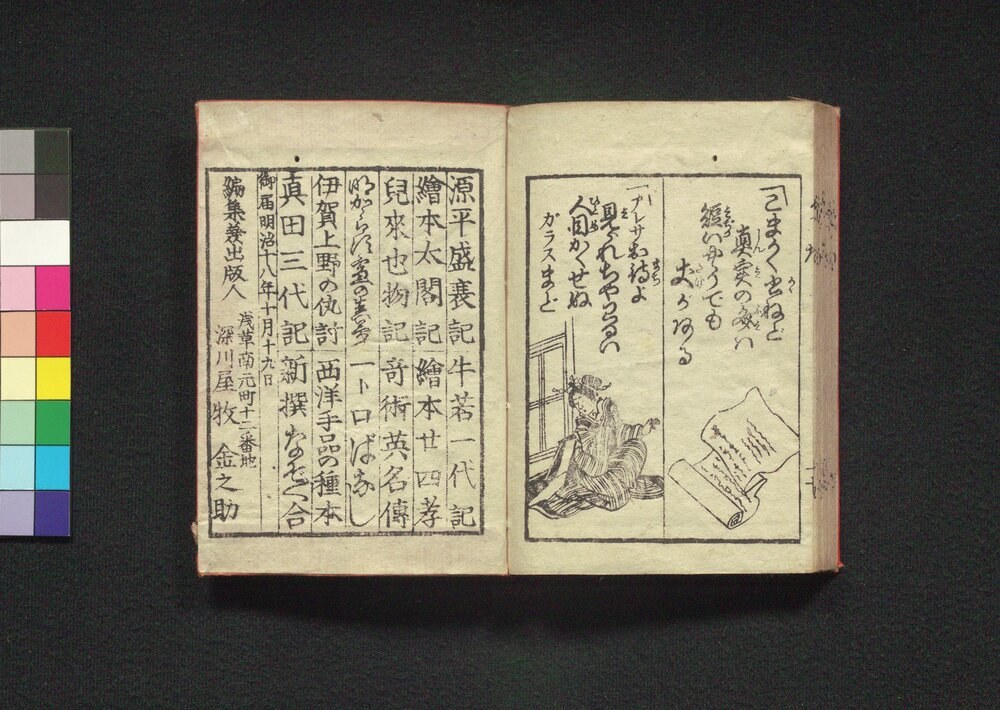 こまかく書ねど
真実の文は
短いやうでも
丈がある
アレサお待よ
見られちやわるい
人目かくせぬ
ガラスまど
源平盛衰記 牛若一代記
繪本太閤記 繪本廿四孝
兒來也物記 竒術英名傳
一ト口ばなし
伊賀上野の仇討 西洋手品の種本
真田三代記 新撰なぞ合
御届明治十八年十月十九日
編集兼出版人
浅草南元町十二番地
深川屋 牧 金之助